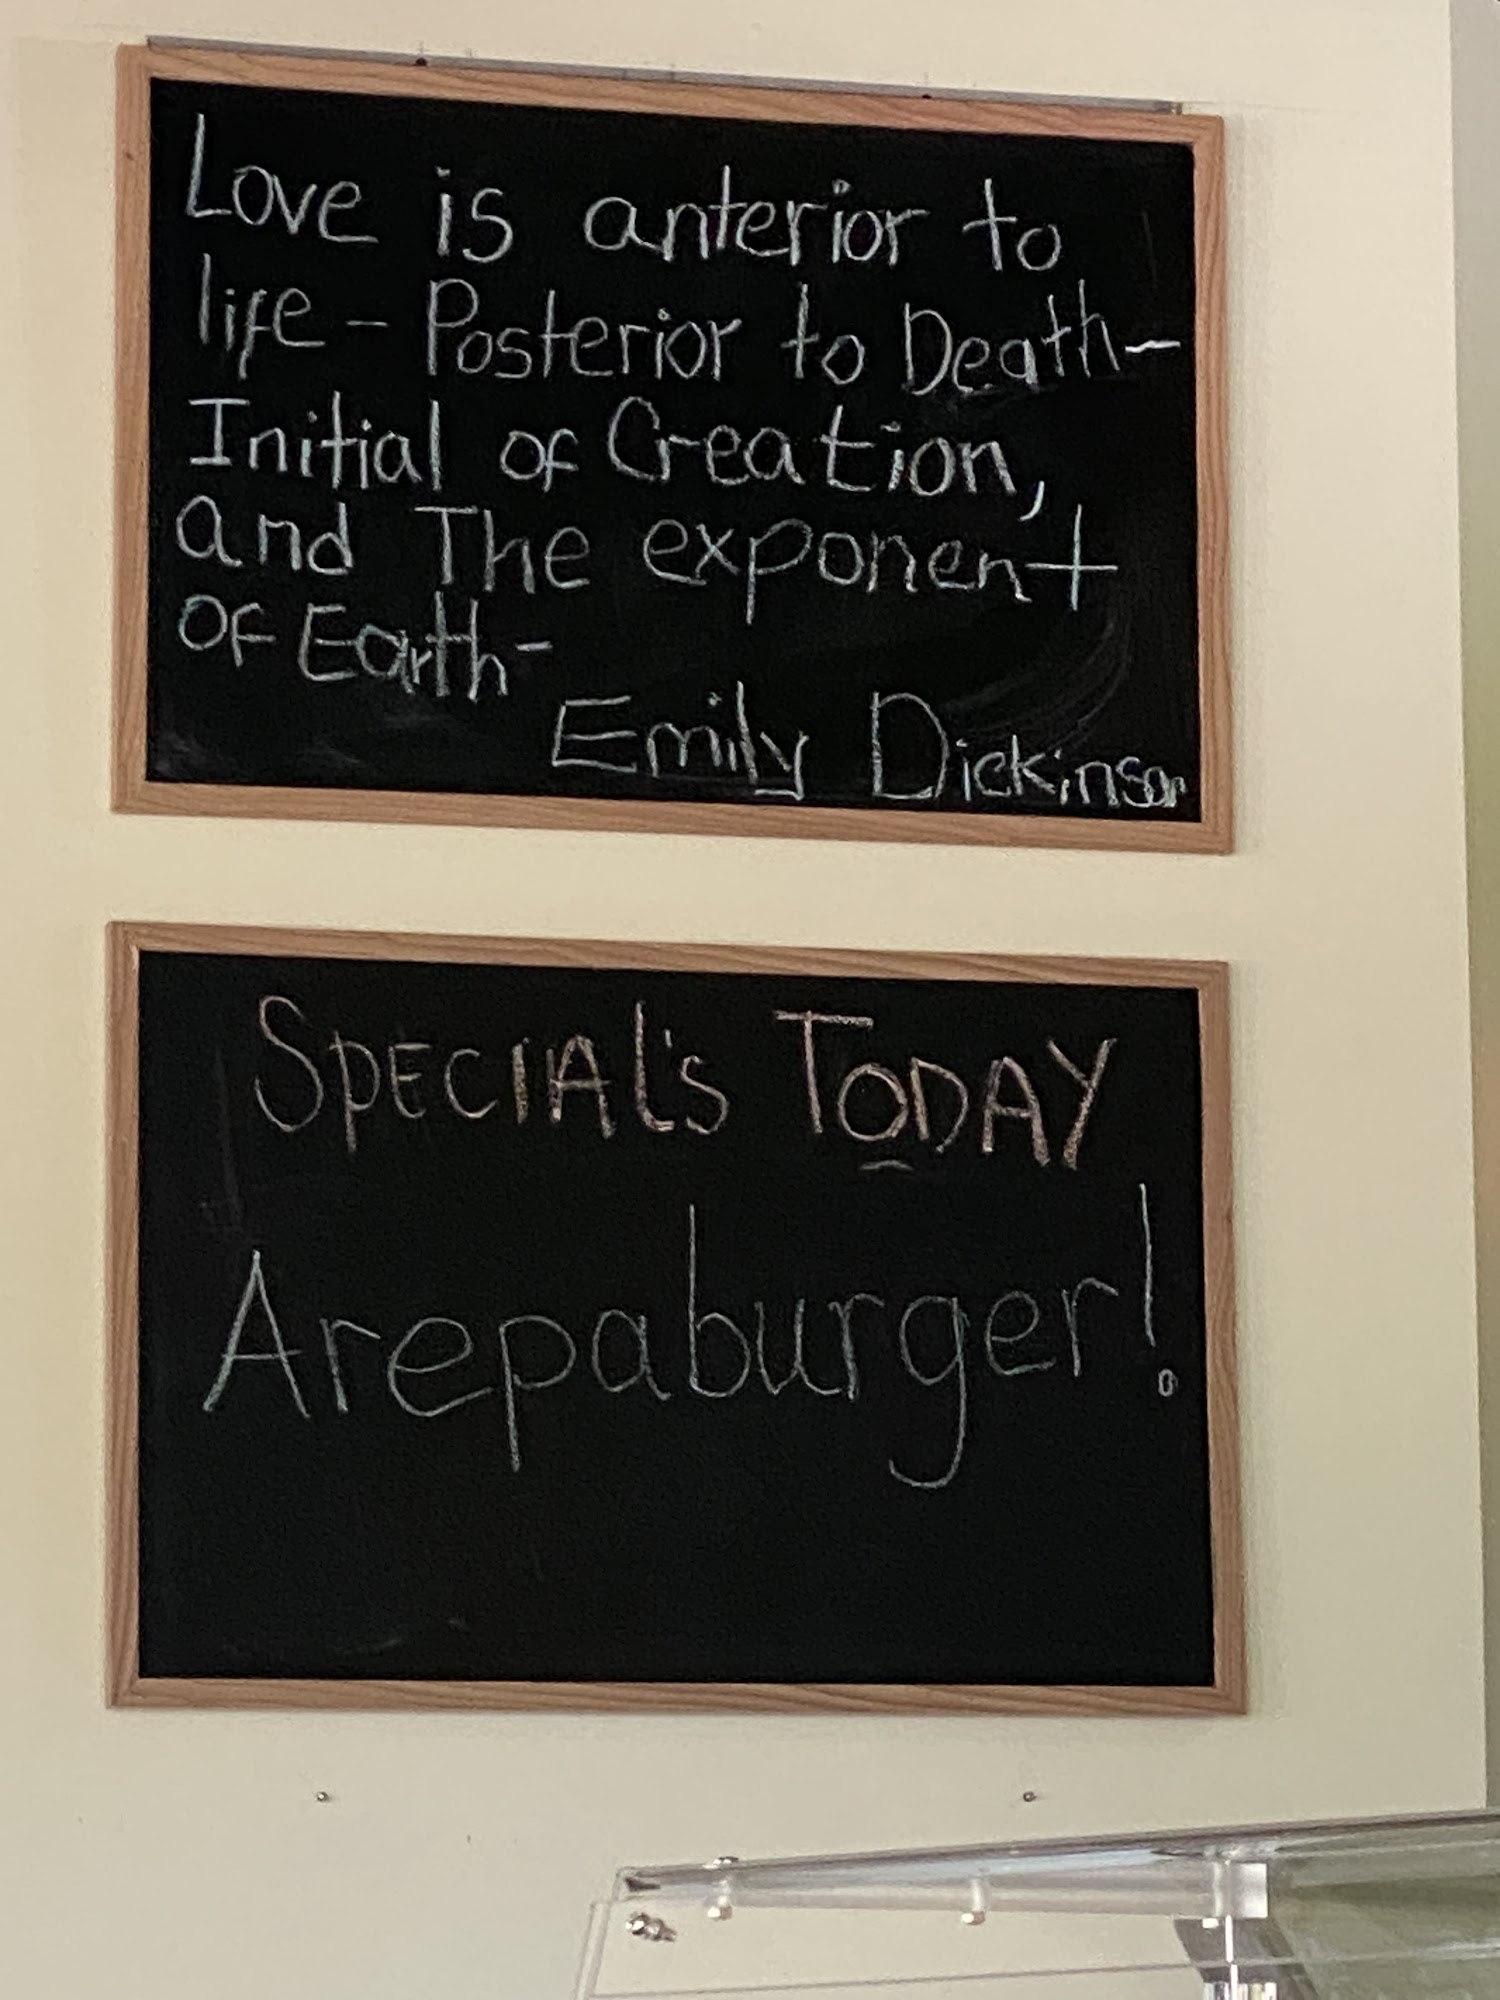 Love is anterior to
life - Posterior to Death -
Initial of Creation,
and The exponent
of Earth -
Emily Dickinson
SPECIAL's TODAY
Arepaburger!